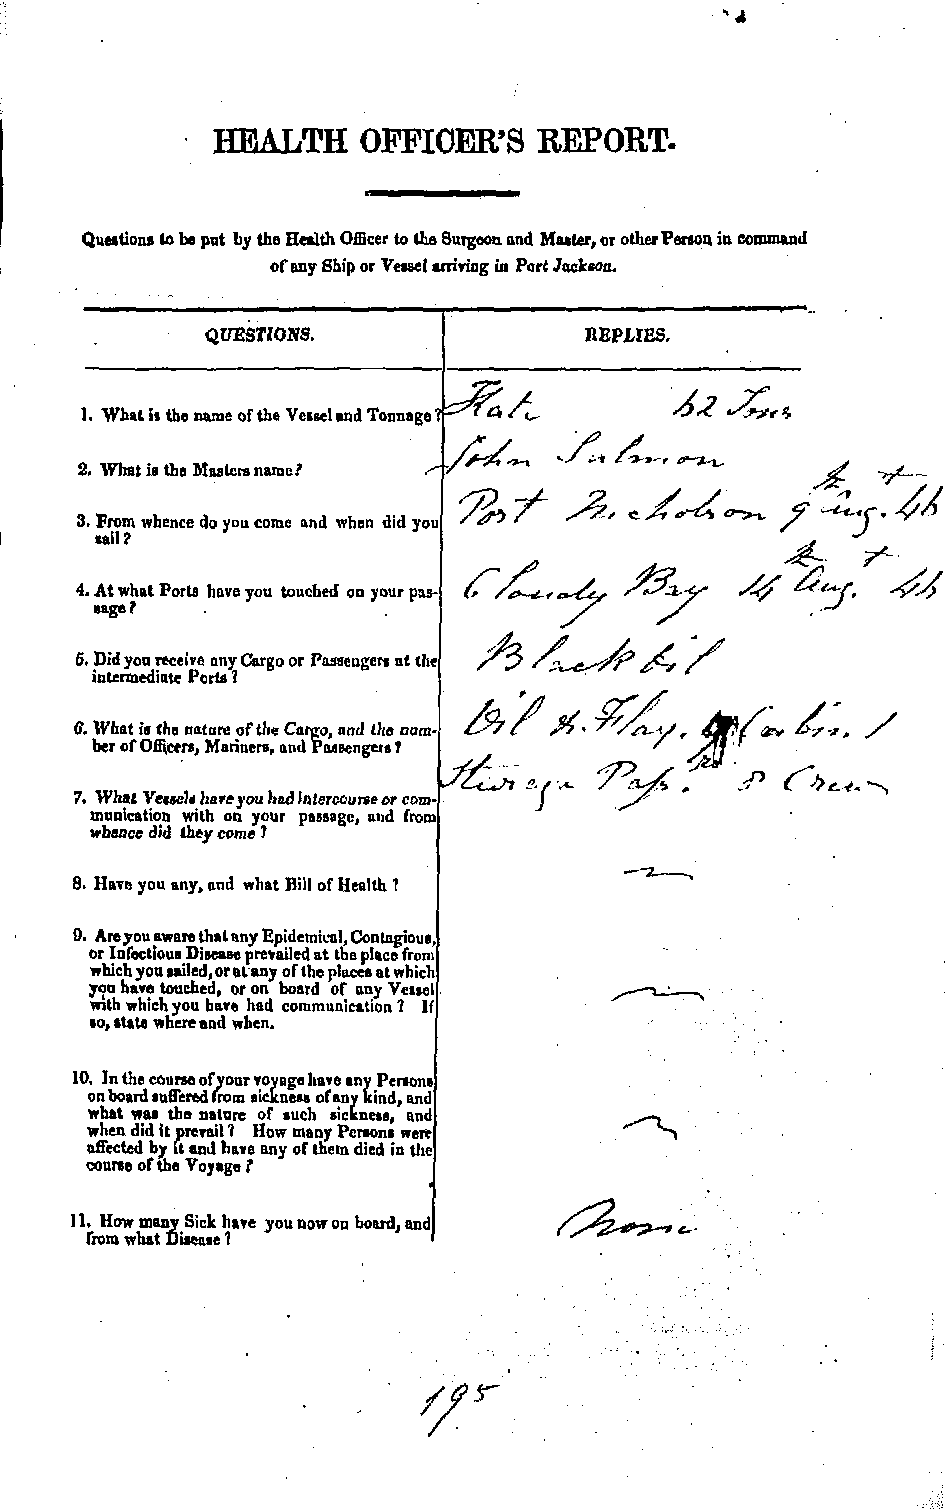 HEALTH OFFICER'S REPORT.
Questions to be put by the Health Officer to the Surgeon and Master, or other Person in command
of any Ship or Vessel arriving in Port Jackson.
QUESTIONS.
REPLIES.
1. What is the name of the Vessel and Tonnage?
Kate 62 Tons
2. What is the Masters name?
John Salmon
3. From whence do you come and when did you
sail?
Port Nicholson 9 Aug. 46
4. At what Ports have you touched on your pas-
sage?
Cloudy Bay 14 Aug. 46
5. Did you receive any Cargo or Passengers at the
intermediate Ports?
Black Oil
6. What is the nature of the Cargo, and the num-
ber of Officers, Mariners, and Passengers?
Oil & Flax. Cabin. 1
Steerage Pass. 8 Crew
7. What Vessels have you had intercourse or com-
munication with on your passage, and from
whence did they come?
8. Have you any, and what Bill of Health?
9. Are you aware that any Epidemical, Contagious,
or Infectious Disease prevailed at the place from
which you sailed, or at any of the places at which
you have touched, or on board of any Vessel
with which you have had communication? If
so, state where and when.
10. In the course of your voyage have any Persons
on board suffered from sickness of any kind, and
what was the nature of such sickness, and
when did it prevail? How many Persons were
affected by it and have any of them died in the
course of the Voyage?
11. How many Sick have you now on board, and
from what Disease?
None
195